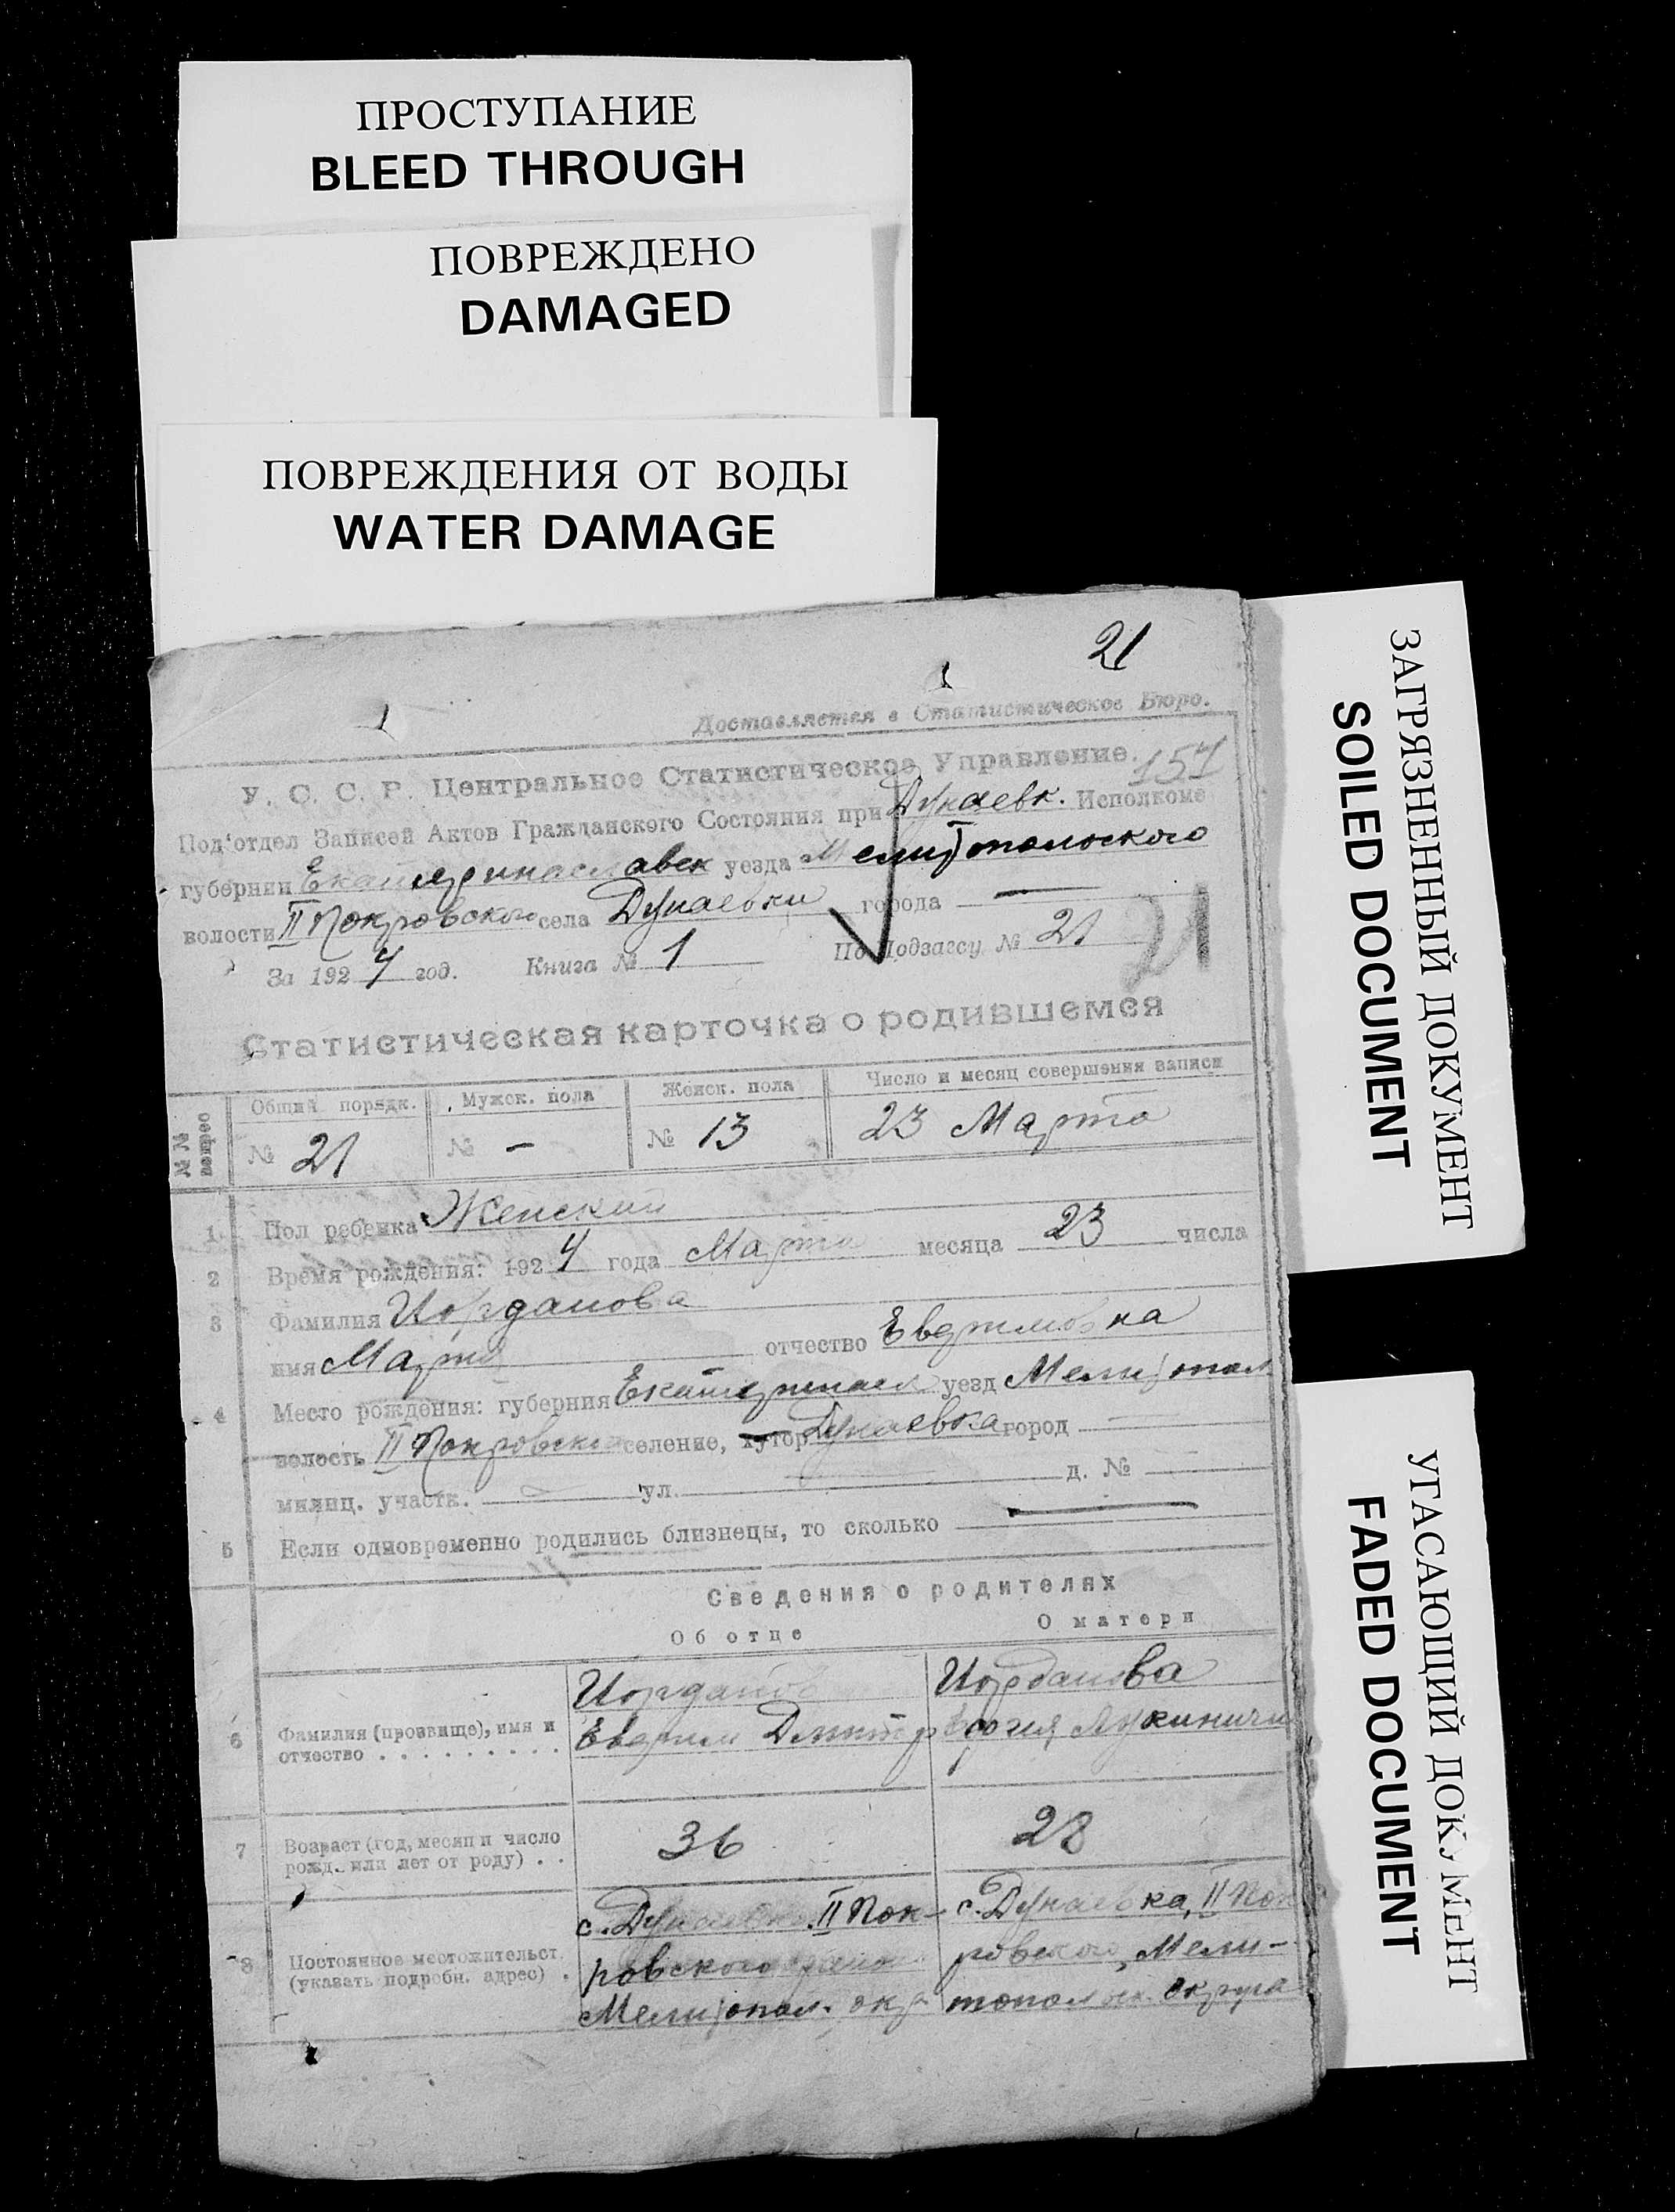 ПРОСТУПАНИЕ
BLEED THROUGH
ПОВРЕЖДЕНО
DAMAGED
ПОВРЕЖДЕНИЯ ОТ ВОДЫ
WATER DAMAGE
21
Доставляется в Статистическое Бюро.
У. С. С. Р. Центральное Статистическое Управление. 157
Под'отдел Записей Актов Гражданского Состояния при Дунаевк. Исполкоме
губернии Екатеринославск уезда Мелитопольского
волости II Покровского села Дунаевки города —
За 1924 год. Книга № 1 По Подзагсу № 21 21
Статистическая карточка о родившемся
№№ вопрос Общий порядк. Мужск. пола Женск. пола Число и месяц совершения записи
№ 21 № – № 13 23 Марта
1 Пол ребенка Женский
2 Время рождения: 1924 года Марта месяца 23 числа
3 Фамилия Иорданова
имя Мария отчество Евдимовна
4 Место рождения: губерния Екатеринасл уезд Мелитопол
волость II Покровская селение, хутор Дунаевка город —
милиц. участк. — ул. — д. № —
5 Если одновременно родились близнецы, то сколько —
Сведения о родителях
Об отце О матери
Иорданов Иорданова
6 Фамилия (прозвище), имя и
отчество . . . . . . . . . . Дмитр Лукинична
7 Возраст (год, месяц и число
рожд. или лет от роду) . . 36 28
с. Дунаевка, II Пок- с. Дунаевка, II Пок
8 Постоянное местожительст.
(указать подробн. адрес) . ровского района ровского, Мели-
Мелитопол. окр топольск. округа
ЗАГРЯЗНЕННЫЙ ДОКУМЕНТ
SOILED DOCUMENT
УГАСАЮЩИЙ ДОКУМЕНТ
FADED DOCUMENT